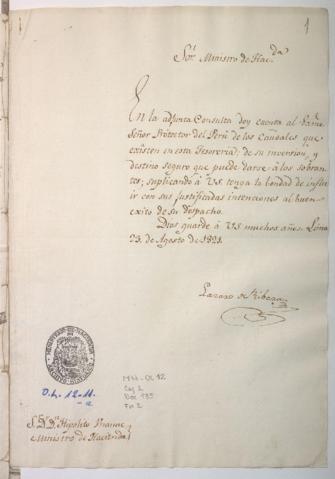 1
Sor. Ministro de Hac.da
En la adjunta Consulta doy cuenta al Exmo.
Señor Protector del Perú de los Caudales que
existen en esta Tesoreria, de su inversion, y
destino seguro que puede darse à los sobran-
tes; suplicando à V.S. tenga la bondad de influ-
ir con sus justificadas intenciones al buen
exito de su despacho.
Dios guarde à V.S. muchos años. Lima
23. de Agosto de 1821.
Lazaro de Ribera
O.L. 12-11.
MH-OL 12
Caj 2
Doc 135
Fol 2
S.or D.n Hipolito Unanue
Ministro de Hacienda